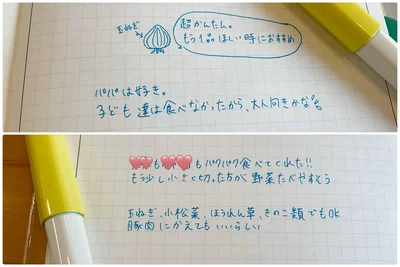 玉ねぎ
超かんたん。
もう1品ほしい時におすすめ
パパは好き。
子ども達は食べなかったから、大人向きかな。
も
もパクパク食べてくれた!!
もう少し小さく切った方が野菜たべやすそう
玉ねぎ、小松菜、ほうれん草、きのこ類でもOK
豚肉にかえてもいいらしい